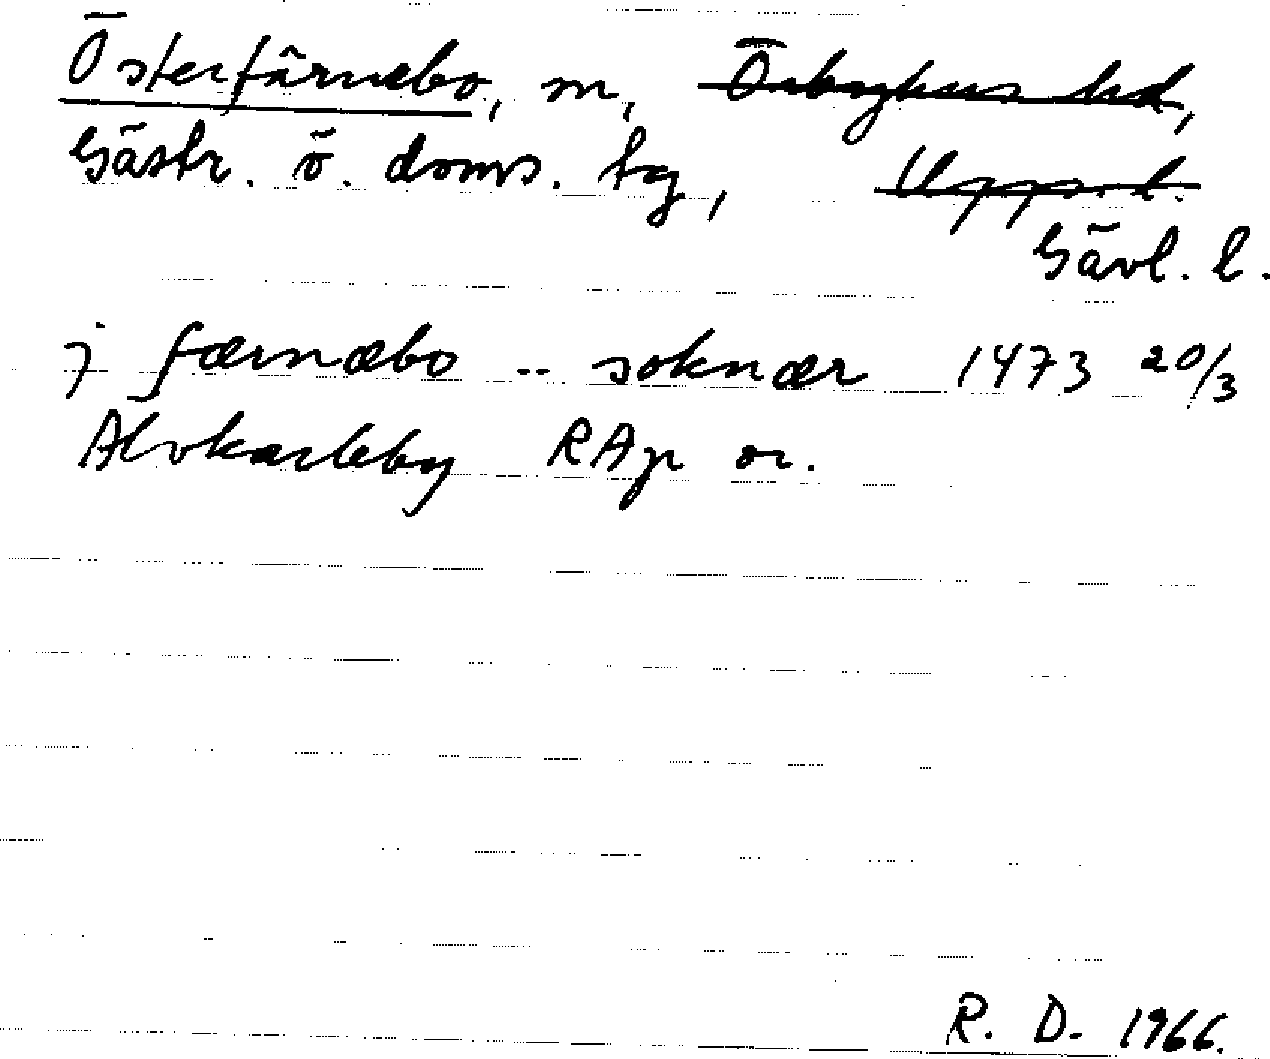 Österfärnebo, m, Örbyhus hd,
Gästr. ö. doms. tg, Upps. l.
Gävl. l.
j færnæbo -- soknær 1473 20/3
Älvkarleby RAp or.
R. D. 1966.